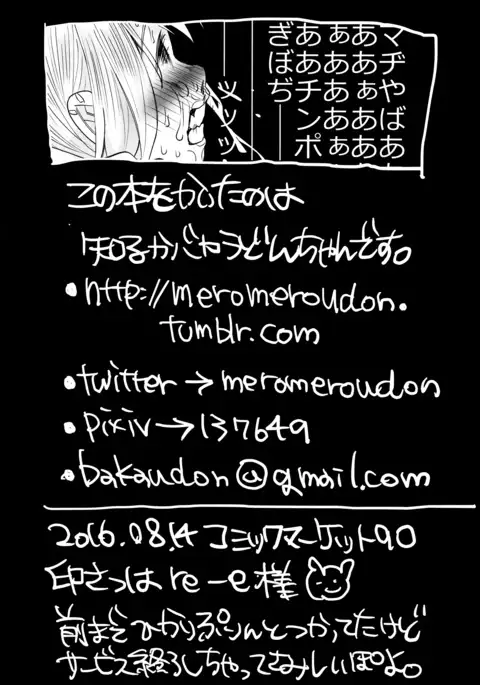 マヂやばあああ
あああああ
ああチンポ
ぎぼぢ
ツッッ
この本をかいたのは
知るかバカうどんちゃんです。
・http://meromeroudon.
tumblr.com
・twitter→meromeroudon
・pixiv→137649
・bakaudon@gmail.com
2016.08.14 コミックマーケット90
印さつは re-e様
前まで ひかりぷりんとつかってたけど
サービス終了しちゃってさみしいぽよ。